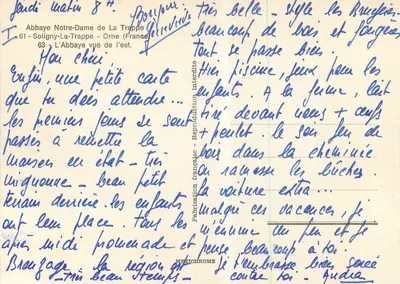 Jeudi matin 8H
Bonjour
Geneviève
I
Abbaye Notre-Dame de La Trappe
61 - Soligny-La-Trappe - Orne (France)
63 - L'Abbaye vue de l'est.
Mon cheri.
Enfin, une petite carte
que tu dois attendre...
les premiers jours se sont
passés à remettre la
maison en état - très
mignonne - beau petit
terrain derrière. les enfants
ont leur place. Tous les
après midi promenade et
Bronzage. la région est
très beau temps -
très belle - style les
beaucoup de bois et
tout se passe bien.
Hier piscine, jeux pour les
enfants. A la ferme, lait
tiré devant nous + œufs
+ poulet. le soir feu de
bois dans la cheminée
on ramasse les bûches.
la voiture extra...
malgré ces vacances, je
m'ennuie un peu et je
pense beaucoup à toi.
je t'embrasse bien serré
contre toi - Andrea
Fabrication française - Reproduction interdite
MEXICHROME